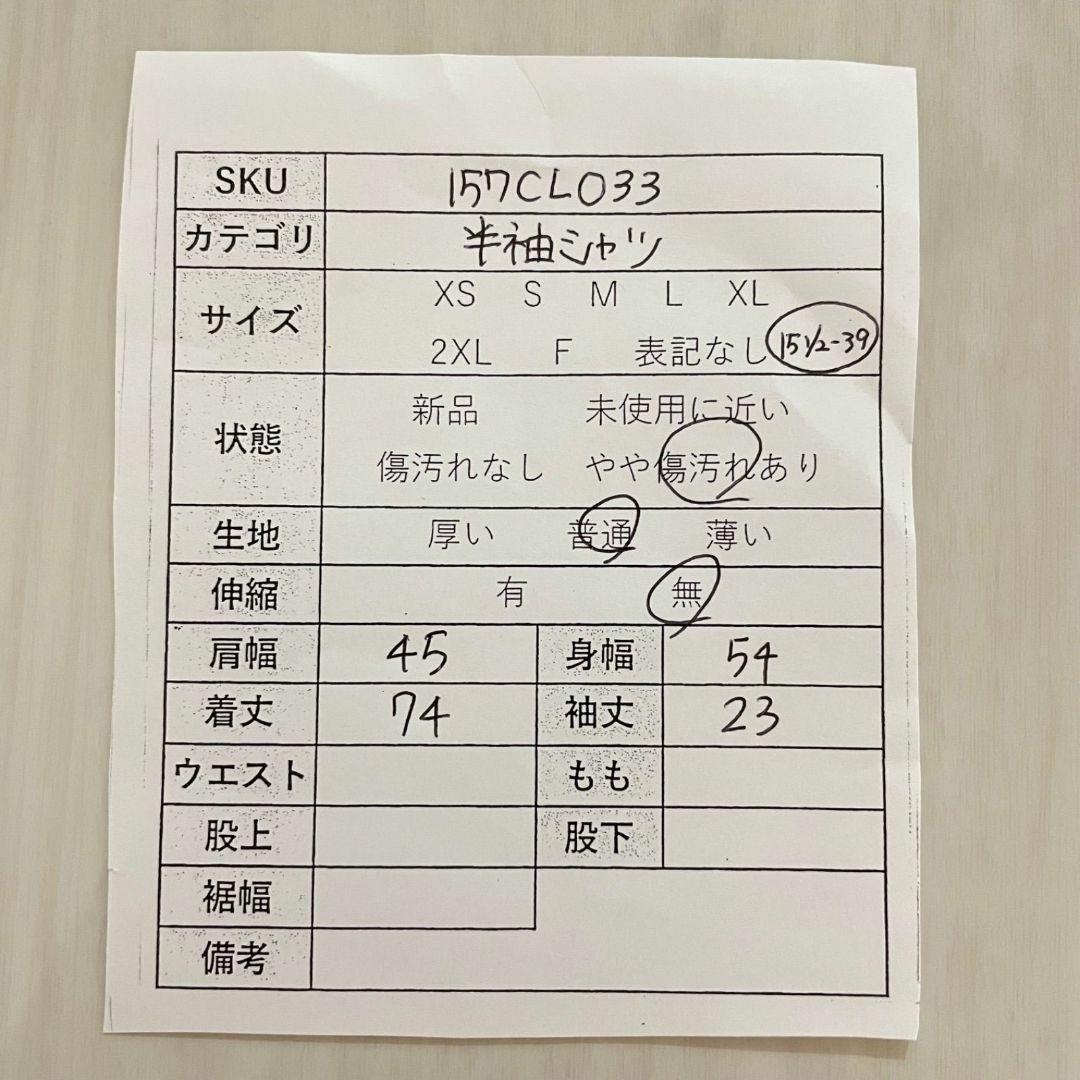 SKU 157CL033
カテゴリ 半袖シャツ
サイズ XS S M L XL
2XL F 表記なし 15 1/2-39
状態 新品 未使用に近い
傷汚れなし やや傷汚れあり
生地 厚い 普通 薄い
伸縮 有 無
肩幅 45 身幅 54
着丈 74 袖丈 23
ウエスト もも
股上 股下
裾幅
備考